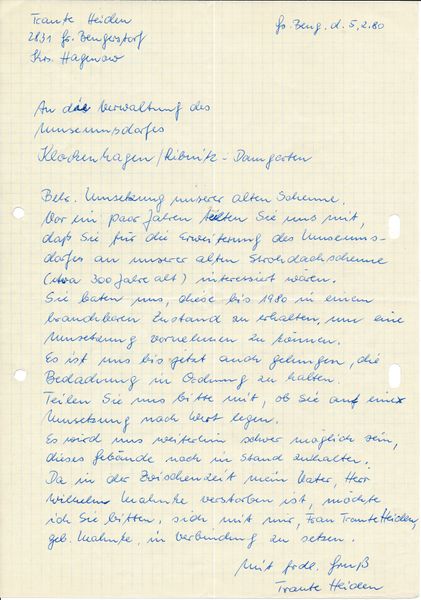 Traute Heiden
2831 Gr. Bengerstorf
Krs. Hagenow
Gr. Beng. d. 5.2.80
An die Verwaltung des
Museumsdorfes
Klockenhagen/Ribnitz-Damgarten
Betr. Umsetzung unserer alten Scheune.
Vor ein paar Jahren teilten Sie uns mit,
daß Sie für die Erweiterung des Museums-
dorfes an unserer alten Strohdachscheune
(etwa 300 Jahre alt) interessiert wären.
Sie baten uns, diese bis 1980 in einem
brauchbaren Zustand zu erhalten, um eine
Umsetzung vornehmen zu können.
Es ist uns bis jetzt auch gelungen, die
Bedachung in Ordnung zu halten.
Teilen Sie uns bitte mit, ob Sie auf einer
Umsetzung noch Wert legen.
Es wird uns weiterhin schwer möglich sein,
dieses Gebäude noch in Stand zuhalten.
Da in der Zwischenzeit mein Vater, Herr
Wilhelm Mahnke verstorben ist, möchte
ich Sie bitten, sich mit mir, Frau Traute Heiden,
geb. Mahnke, in Verbindung zu setzen.
Mit frdl. Gruß
Traute Heiden